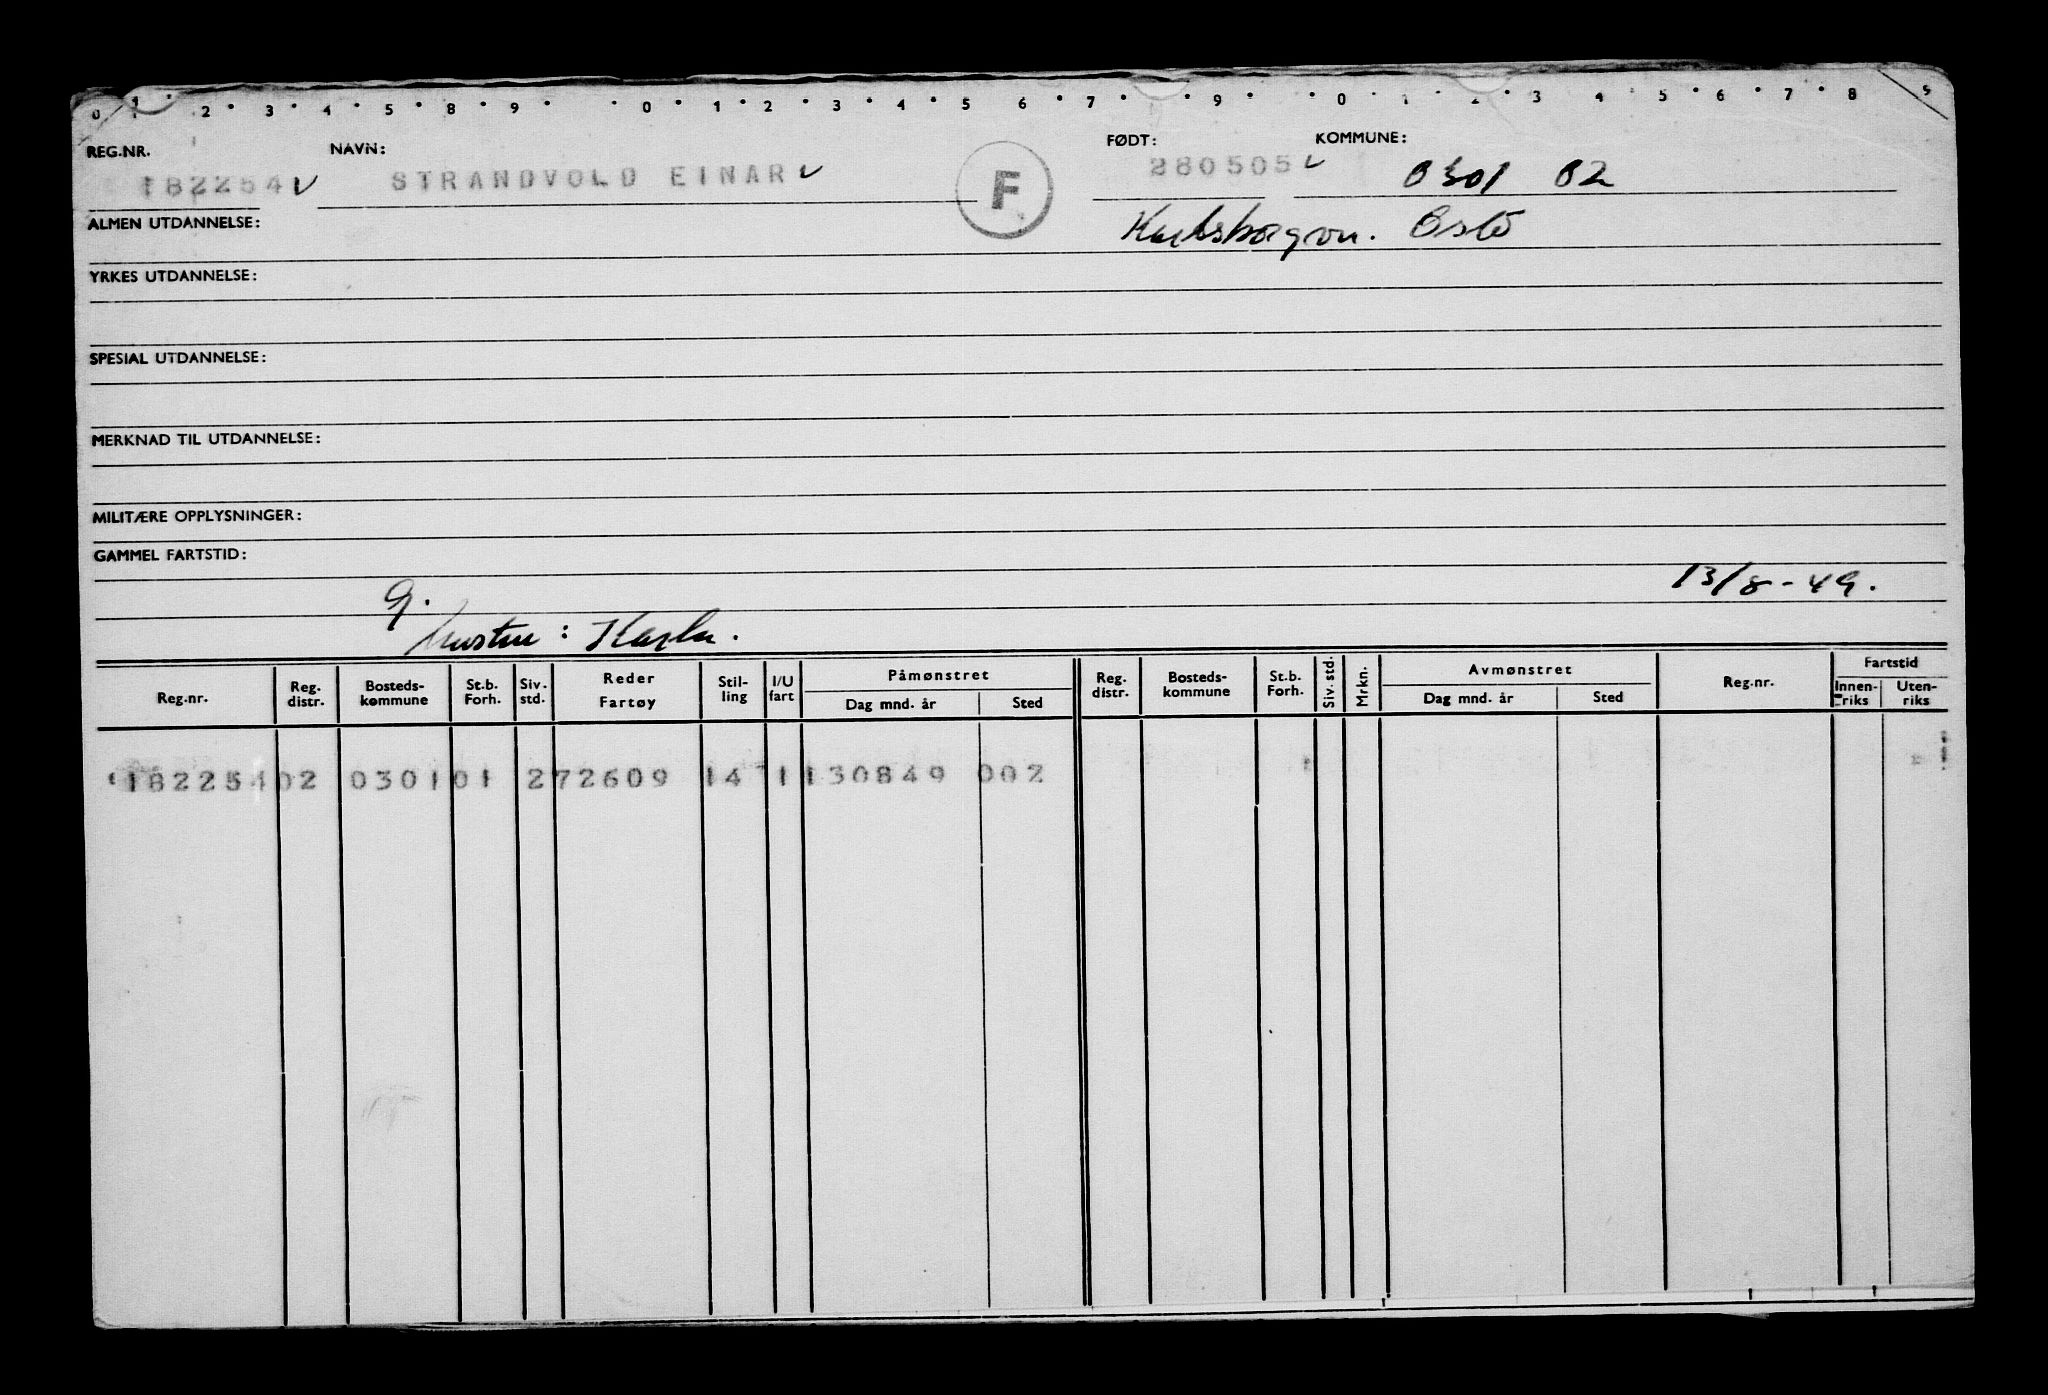 0 1 2 3 4 5 8 9 0 1 2 3 4 5 6 7 9 0 1 2 3 4 5 6 7 8 9
REG.NR. NAVN: FØDT: KOMMUNE:
182254 STRANDVOLD EINAR F 280505 0301 02
ALMEN UTDANNELSE: Oslo
YRKES UTDANNELSE:
SPESIAL UTDANNELSE:
MERKNAD TIL UTDANNELSE:
MILITÆRE OPPLYSNINGER:
GAMMEL FARTSTID:
g. 13/8-49.
hustru: Karla.
Reg.nr. Reg. distr. Bosteds-kommune St.b. Forh. Siv. std. Reder Fartøy Stil-ling I/U fart Påmønstret Dag mnd. år Sted Reg. distr. Bosteds-kommune St.b. Forh. Siv. std. Mrkn. Avmønstret Dag mnd. år Sted Reg.nr. Fartstid Innen-riks Uten-riks
182254 02 0301 01 2 72609 14 1 130849 002